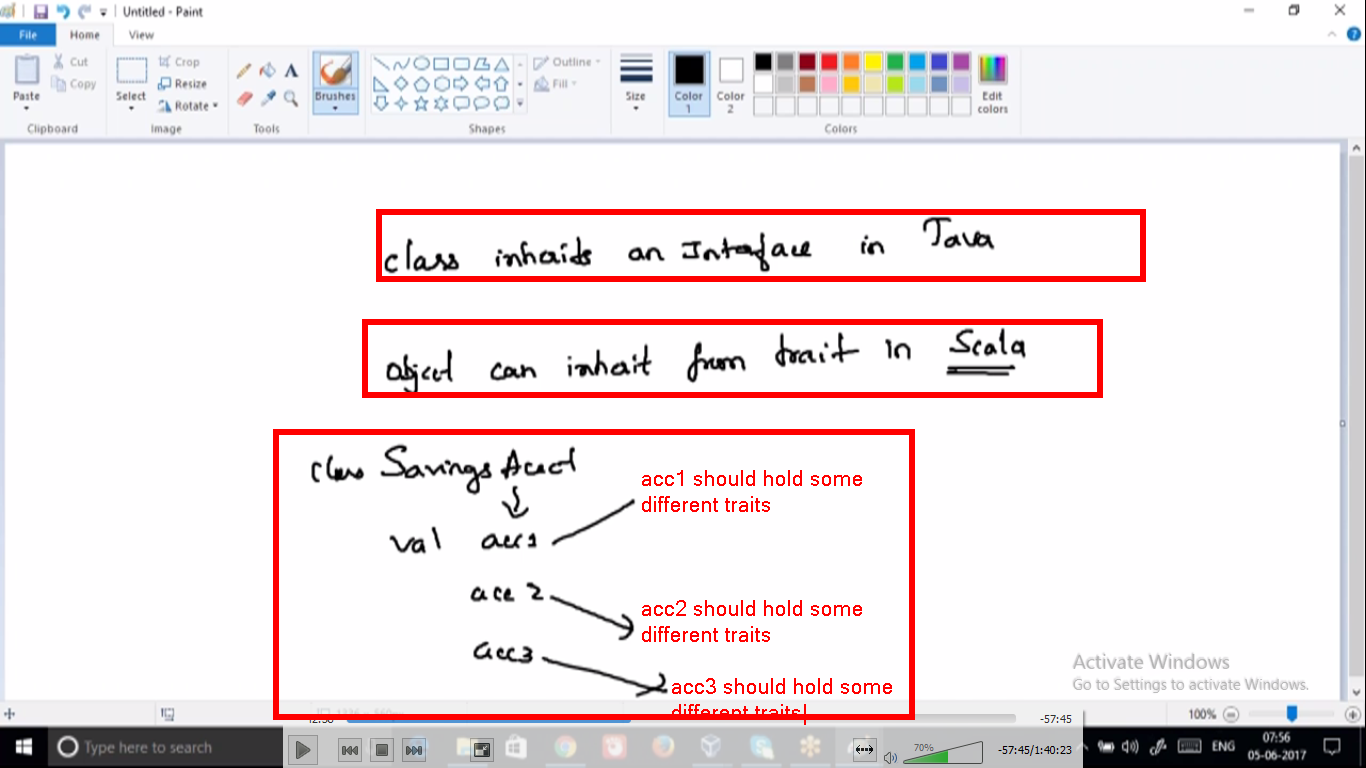 Untitled - Paint
File Home View
Paste
Cut
Copy
Clipboard
Select
Crop
Resize
Rotate
Image
Tools
Brushes
Shapes
Outline
Fill
Size
Color 1
Color 2
Edit colors
Colors
class inherits an Interface in Java
object can inherit from trait in Scala
class Savings Acect
val acc1
acc1 should hold some
different traits
acc 2
acc2 should hold some
different traits
acc3
acc3 should hold some
different traits
Activate Windows
Go to Settings to activate Windows.
100%
-57:45
Type here to search
70%
-57:45/1:40:23
ENG
07:56
05-06-2017